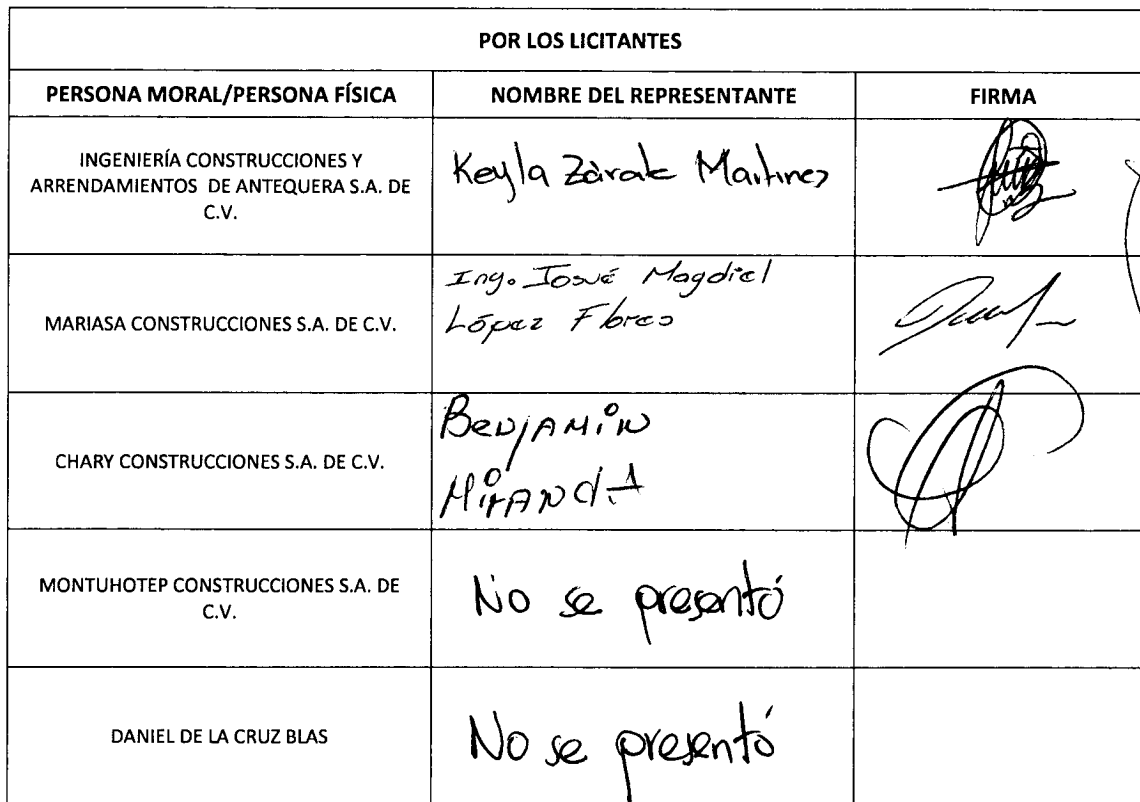 POR LOS LICITANTES
PERSONA MORAL/PERSONA FÍSICA NOMBRE DEL REPRESENTANTE FIRMA
INGENIERÍA CONSTRUCCIONES Y
ARRENDAMIENTOS DE ANTEQUERA S.A. DE
C.V.
Keyla Zárate Martinez
MARIASA CONSTRUCCIONES S.A. DE C.V.
Ing. Josué Magdiel
López Flores
CHARY CONSTRUCCIONES S.A. DE C.V.
BENJAMIN
MIRANdA
MONTUHOTEP CONSTRUCCIONES S.A. DE
C.V.
No se presentó
DANIEL DE LA CRUZ BLAS
No se presentó